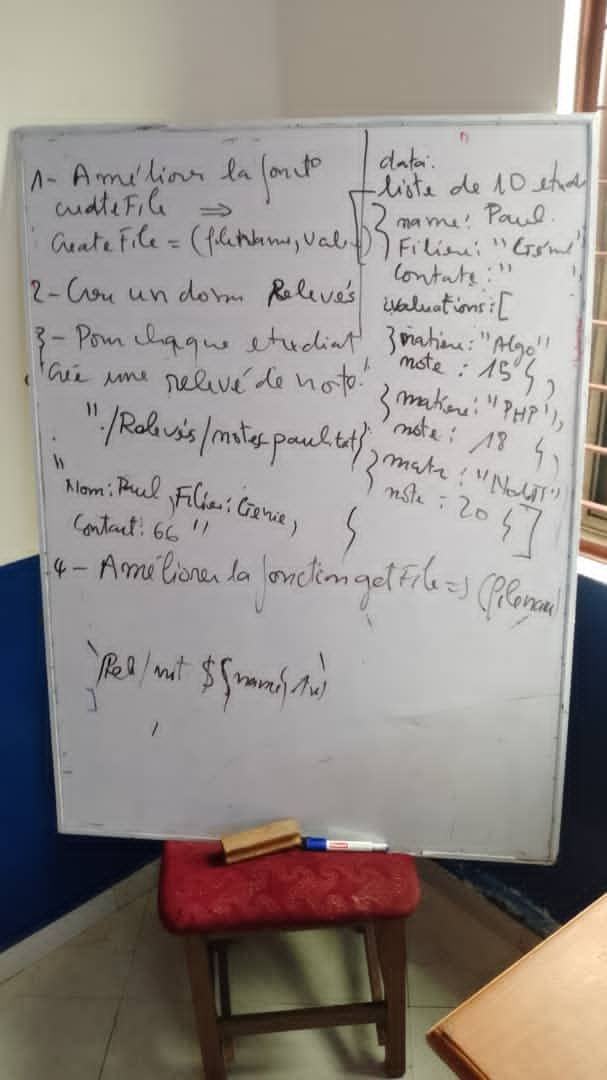 1- Améliorer la foncto
createFile ⇒
CreateFile = (fileName, Value)
2- Créer un dossier Relevés
3- Pour chaque etudiant
Crée une relevé de note.
"./Relevés/notes paul.txt
"Nom: Paul, Filière: Genie,
Contact: 66"
4- Améliorer la fonction getFile => (filename)
`Rel/not ${name}.txt`
data:
liste de 10 etud
{ name: Paul.
Filière: "Genie"
Contact: "
evaluations: [
{ matière: "Algo"
note: 15 },
{ matiere: "PHP",
note: 18 },
{ matr: "
note: 20 }]